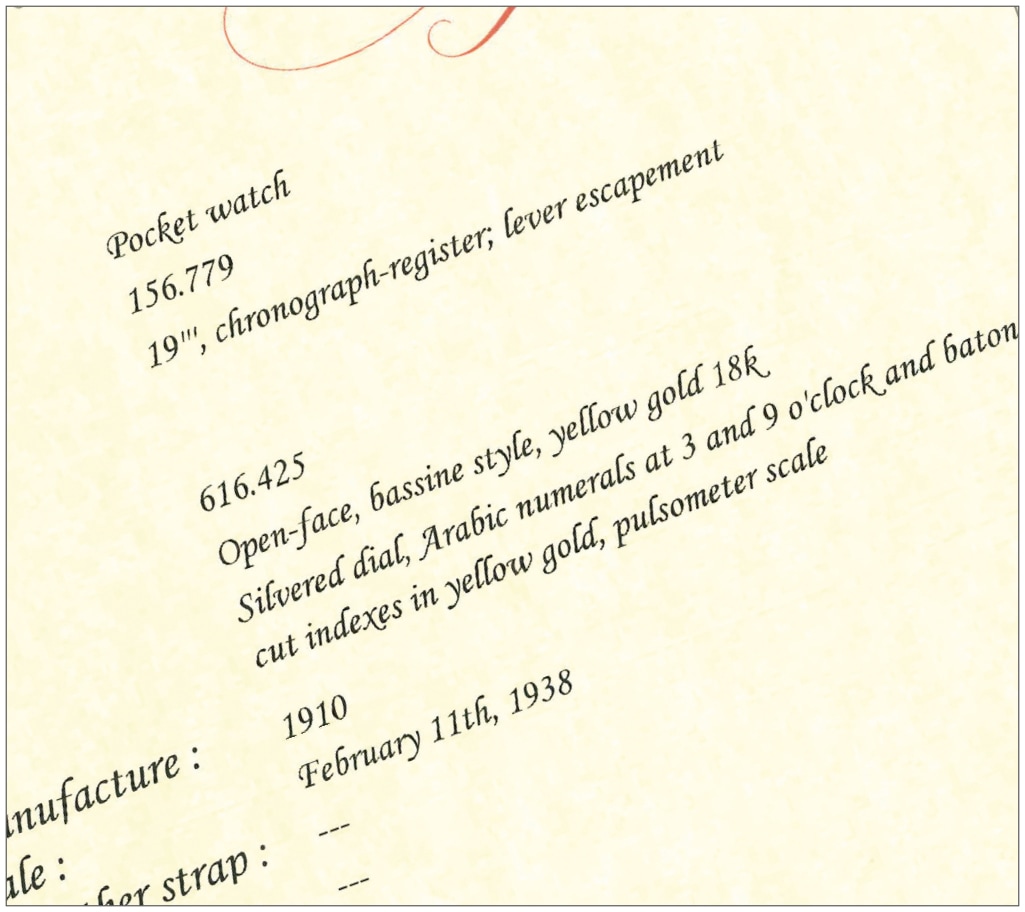 Pocket watch
156.779
19''', chronograph-register; lever escapement
616.425
Open-face, bassine style, yellow gold 18k
Silvered dial, Arabic numerals at 3 and 9 o'clock and baton
cut indexes in yellow gold, pulsometer scale
anufacture : 1910
ale : February 11th, 1938
her strap : ---
---